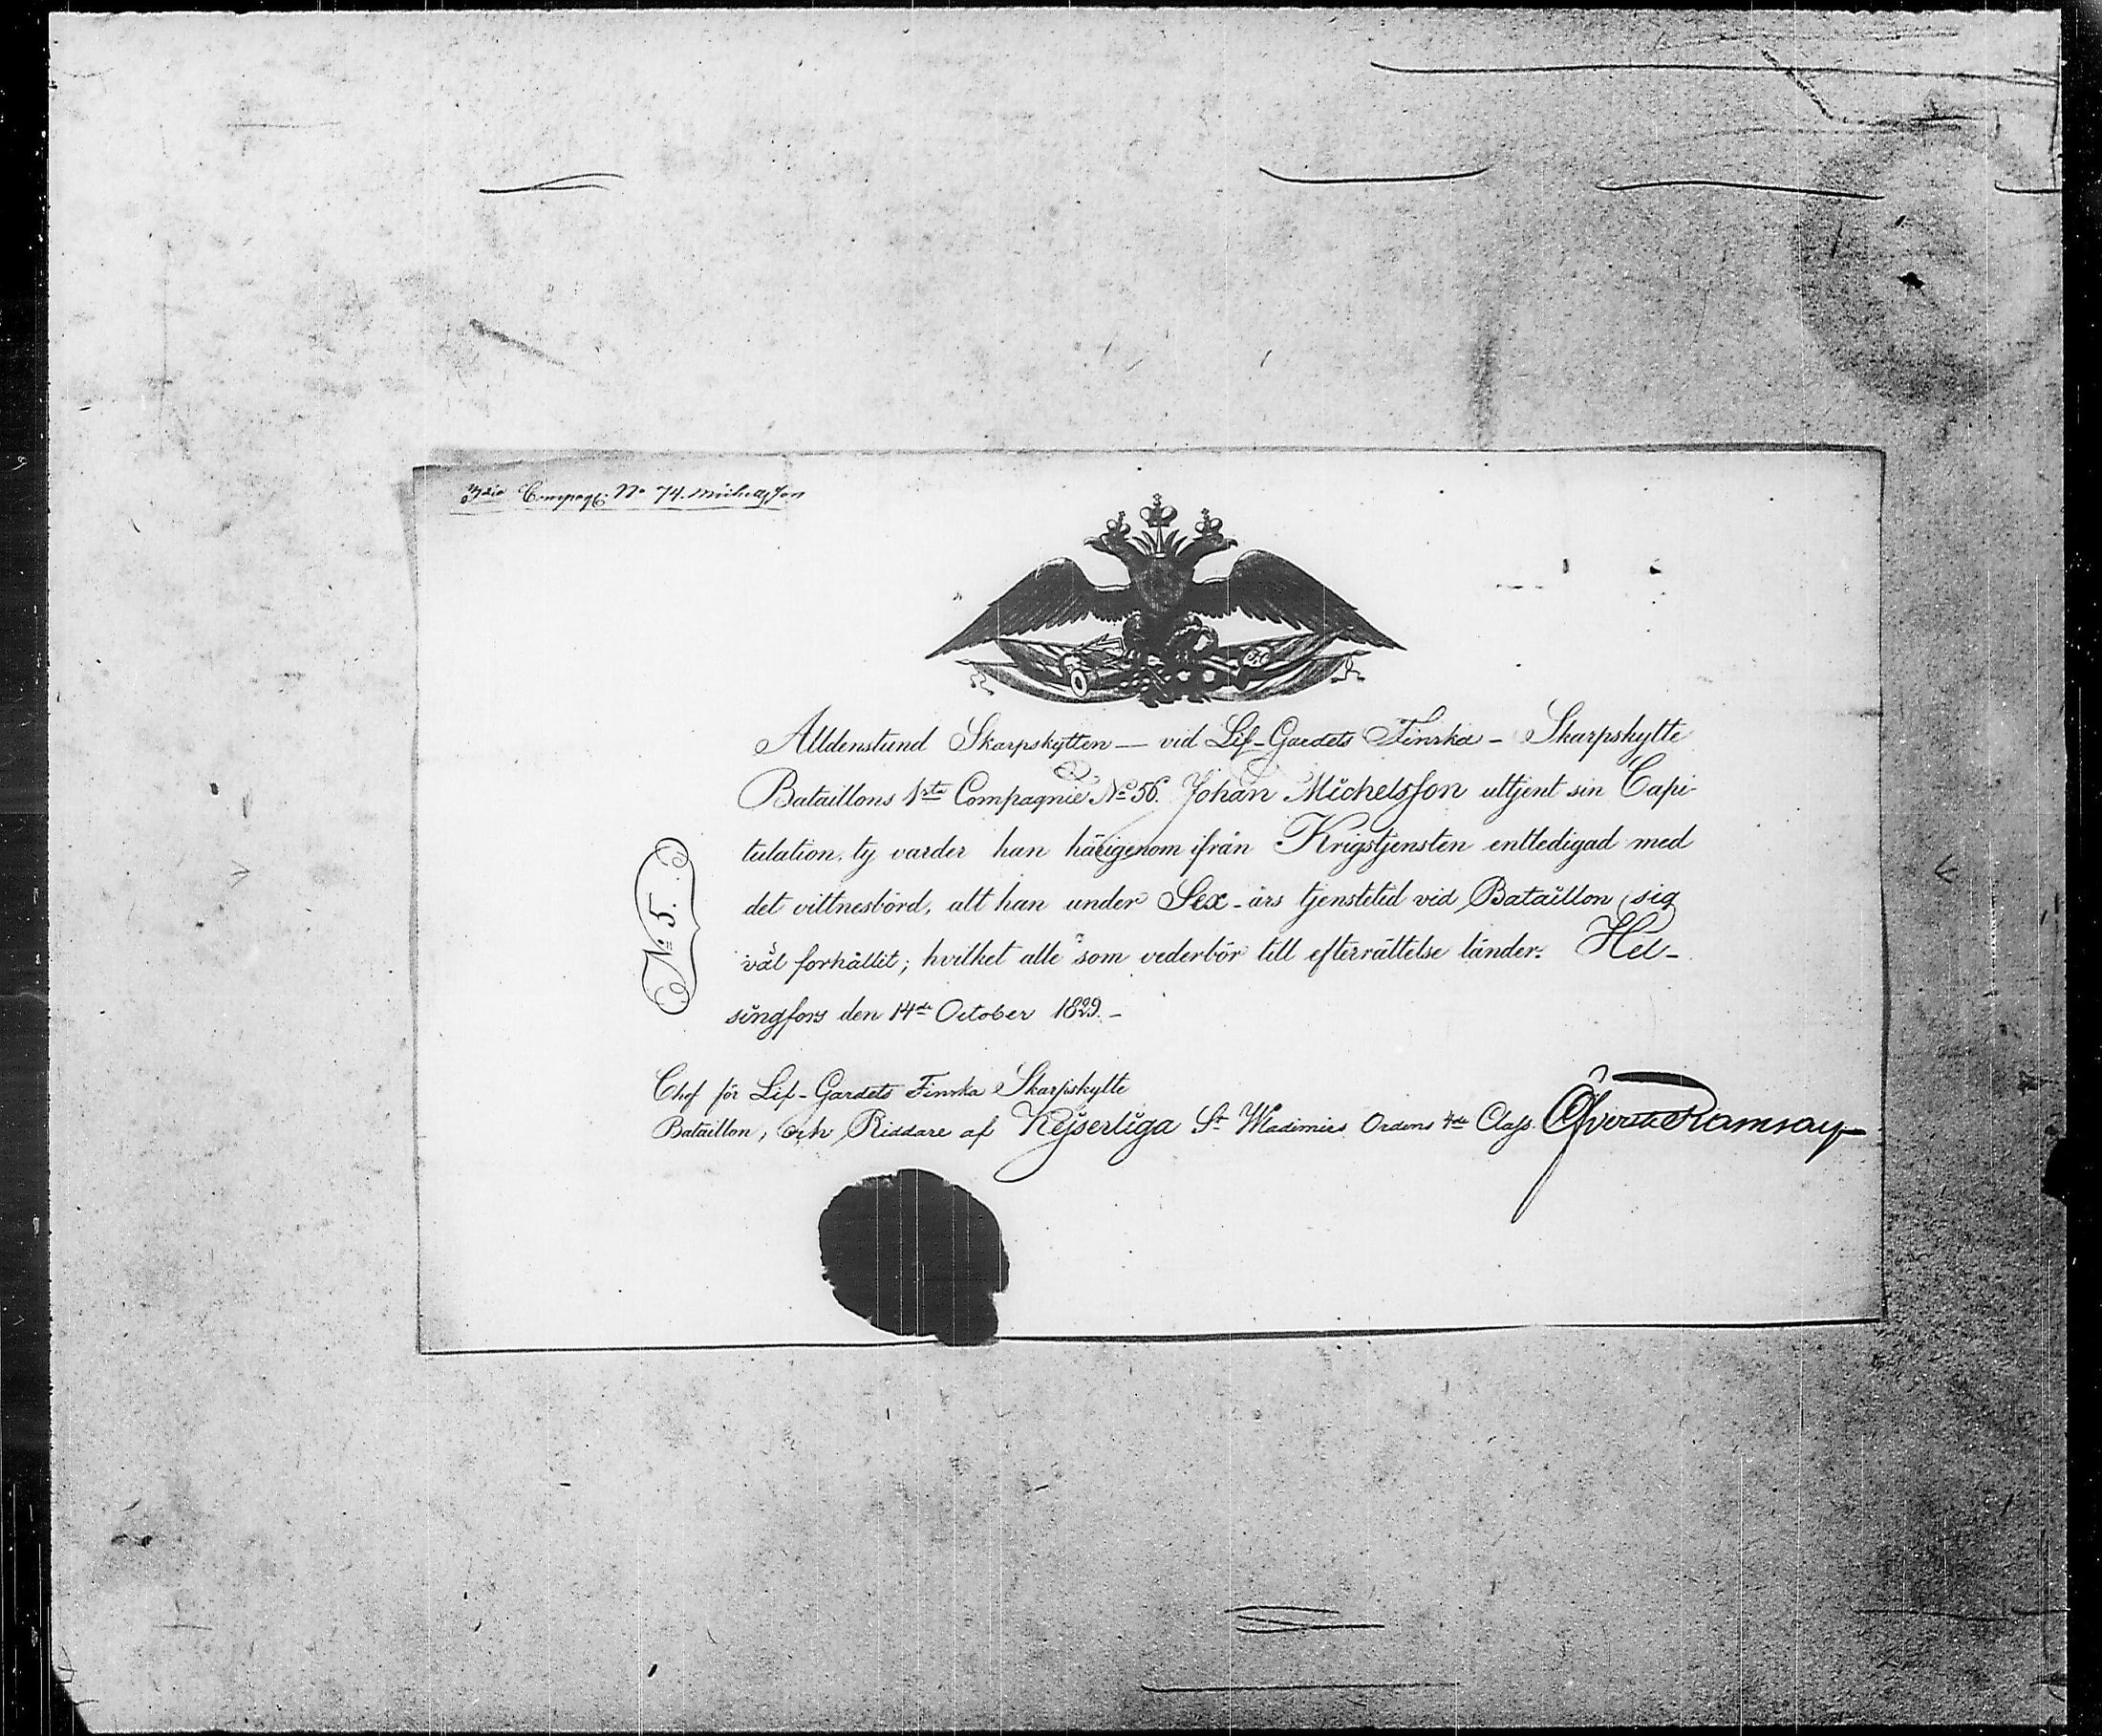 Compag: No 74. Michelsson
Alldenstund Skarpskytten — vid Lif-Gardets Finska - Skarpskytte
Bataillons 1sta Compagnie No 56. Johan Michelsson uttjent sin Capi-
tulation, ty varder han härigenom ifrån Krigstjensten entledigad med
det vittnesbörd, att han under Sex - års tjenstetid vid Bataillon sig
väl förhållit; hvilket alle som vederbör till efterrättelse länder. Hel-
singfors den 14de October 1829. -
No 5.
Chef för Lif-Gardets Finska Skarpskytte
Bataillon, och Riddare af Kejserliga St Wladimirs Ordens 4de Class. Öfverste Ramsay